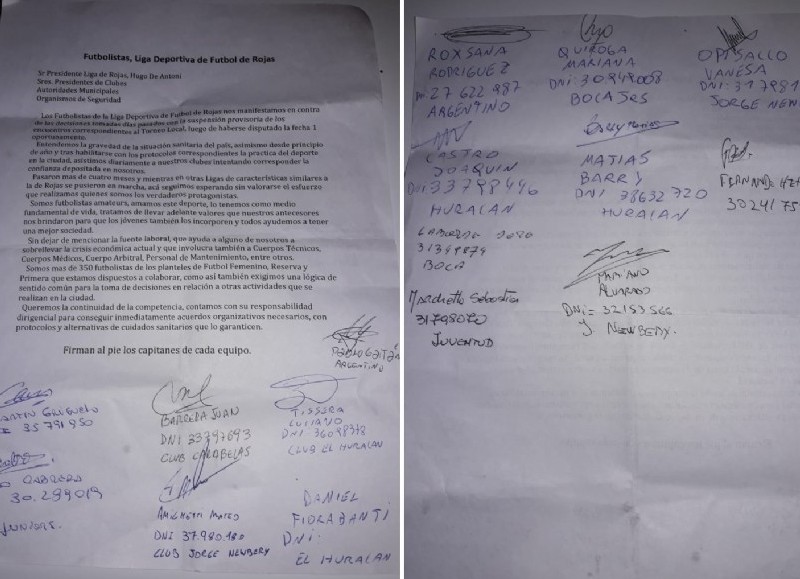 Futbolistas, Liga Deportiva de Futbol de Rojas
Sr Presidente Liga de Rojas, Hugo De Antoni
Sres. Presidentes de Clubes
Autoridades Municipales
Organismos de Seguridad
Los Futbolistas de la Liga Deportiva de Futbol de Rojas nos manifestamos en contra
de las decisiones tomadas días pasados con la suspensión provisoria de los
encuentros correspondientes al Torneo Local, luego de haberse disputado la fecha 1
oportunamente.
Entendemos la gravedad de la situación sanitaria del país, asimismo desde principio
de año y tras habilitarse con los protocolos correspondientes la practica del deporte
en la ciudad, asistimos diariamente a nuestros clubes intentando corresponder la
confianza depositada en nosotros.
Pasaron mas de cuatro meses y mientras en otras Ligas de características similares a
la de Rojas se pusieron en marcha, acá seguimos esperando sin valorarse el esfuerzo
que realizamos quienes somos los verdaderos protagonistas.
Somos futbolistas amateurs, amamos este deporte, lo tenemos como medio
fundamental de vida, tratamos de llevar adelante valores que nuestros antecesores
nos brindaron para que los jóvenes también los incorporen y todos ayudemos a tener
una mejor sociedad.
Sin dejar de mencionar la fuente laboral, que ayuda a alguno de nosotros a
sobrellevar la crisis económica actual y que involucra también a Cuerpos Técnicos,
Cuerpos Médicos, Cuerpo Arbitral, Personal de Mantenimiento, entre otros.
Somos mas de 350 futbolistas de los planteles de Futbol Femenino, Reserva y
Primera que estamos dispuestos a colaborar, como así también exigimos una lógica de
sentido común para la toma de decisiones en relación a otras actividades que se
realizan en la ciudad.
Queremos la continuidad de la competencia, contamos con su responsabilidad
dirigencial para conseguir inmediatamente acuerdos organizativos necesarios, con
protocolos y alternativas de cuidados sanitarios que lo garanticen.
Firman al pie los capitanes de cada equipo.
ARGENTINO
35791950
BARRERA JUAN
DNI 33797693
CLUB CARABELAS
TISSERA
LUCIANO
DNI 36098378
CLUB EL HURACAN
CABRERA
30.299019
JUNIORS.
MATEO
DNI 37.980.180
CLUB JORGE NEWBERY
DANIEL
FIORABANTI
DNI:
EL HURACAN
ROXSANA
RODRIGUEZ
27622987
ARGENTINO
QUIROGA
MARIANA
DNI: 30.949.008
BOCA JRS
VANESA
DNI: 317981
JORGE NEWB
CASTRO
JOAQUIN
DNI 33798490
HURACAN
MATIAS
BARRY
DNI 38632720
HURACAN
FERNAND
3024175
31349879
BOCA
Marchetto Sebastian
31798070
JUVENTUD
MARIANO
ALVARADO
DNI= 32153566
J. NEWBERY.